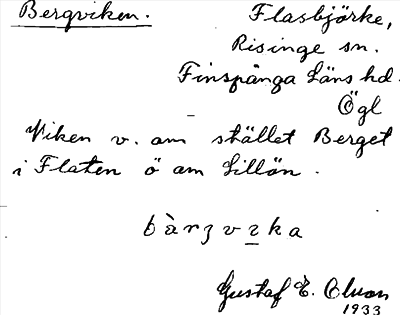 Bergviken.
Flasbjörke,
Risinge sn.
Finspånga Läns hd.
Ögl
Viken v. om stället Berget
i Flaten ö om Lillön.
bàrʒvɪka
Gustaf E. Olson
1933